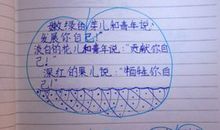 嫩绿的芽儿和青年说：
发展你自己！”
淡白的花儿和青年说：“贡献你自
己！”
深红的果儿说：“牺牲你自
己！”